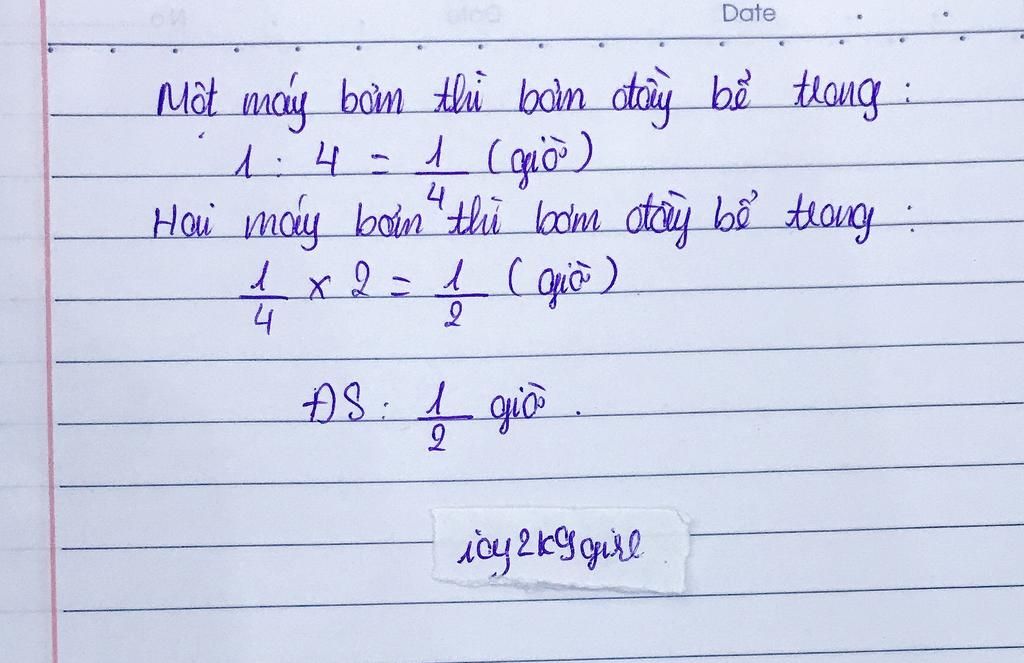 Date
Một máy bơm thì bơm đầy bể trong :
1 : 4 = 1/4 (giờ)
Hai máy bơm thì bơm đầy bể trong :
1/4 x 2 = 1/2 (giờ)
ĐS : 1/2 giờ .
icy2k9girl